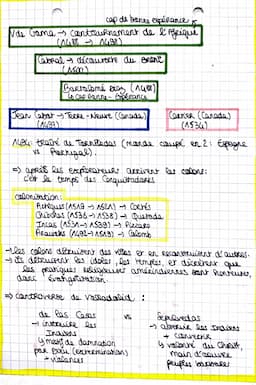 cap de bonne espérance
V de Gama → contournement de l'Afrique
(1498)
Cabral → découverte du Brésil
(1500)
Bartolomé Diaz (1488)
le cap Bonne-Espérance
Jean Cabot → Terre-Neuve (Canada)
(1497)
Cartier (Canada)
(1534)
1494: traité de Tordesillas (monde coupé en 2: Espagne
vs Portugal).
⇒ après les explorateurs arrivent les colons:
c'est le temps des Conquistadores
colonisation:
Aztèques (1519 → 1521) → Cortès
Chibchas (1536 → 1538) → Quesada
Incas (1531 → 1533) → Pizzaro
Arawaks (1492 → 1513) → Colomb
→ les colons détruisent des villes et en reconstruisent d'autres.
→ ils détruisent les idoles, les temples, et décrètent que
les pratiques religieuses amérindiennes sont honteuses,
dans évangélisation.
⇒ controverse de Valladolid:
de Las Casas vs Sepulveda
→ instruire les
Indiens
→ asservir les Indiens
+ convertir
↳ motif de damnation
pour Dieu (extermination)
+ violences
↳ volonté du Christ,
main d'œuvre
peuples barbares